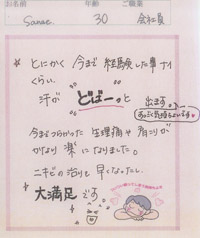 お名前 年齢 ご職業
Sanae 30 会社員
とにかく今まで経験した事ナイ
くらい
汗が どばーっと 出ます。
あっごく気持ちいいです
今までつらかった 生理痛や 肩こりが
かなり楽になりました。
ニキビの治りも早くなったし、
大満足です